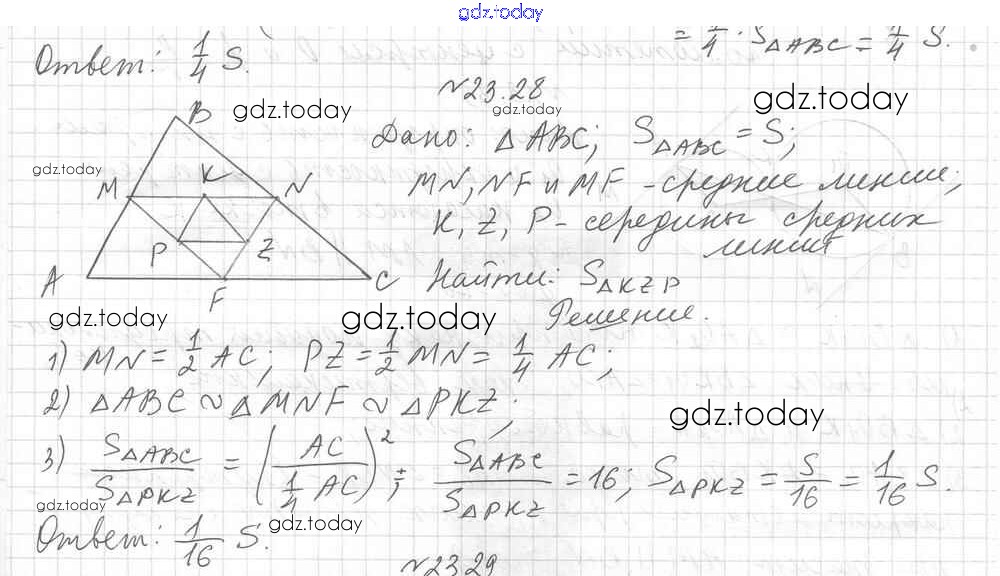 gdz.today
= 1/4 · S△ABC = 1/4 S.
Ответ: 1/4 S.
№23.28
gdz.today
gdz.today
gdz.today
Дано: △ABC; S△ABC = S;
gdz.today
B
M
K
N
MN, NF и MF - средние линии;
K, Z, P - середины средних
линий
P
Z
A
F
C
Найти: S△KZP
gdz.today
gdz.today
Решение.
1) MN = 1/2 AC; PZ = 1/2 MN = 1/4 AC;
2) △ABC ~ △MNF ~ △PKZ;
gdz.today
3) S△ABC / S△PKZ = (AC / 1/4 AC)²; S△ABC / S△PKZ = 16; S△PKZ = S/16 = 1/16 S.
gdz.today
gdz.today
Ответ: 1/16 S.
№23.29